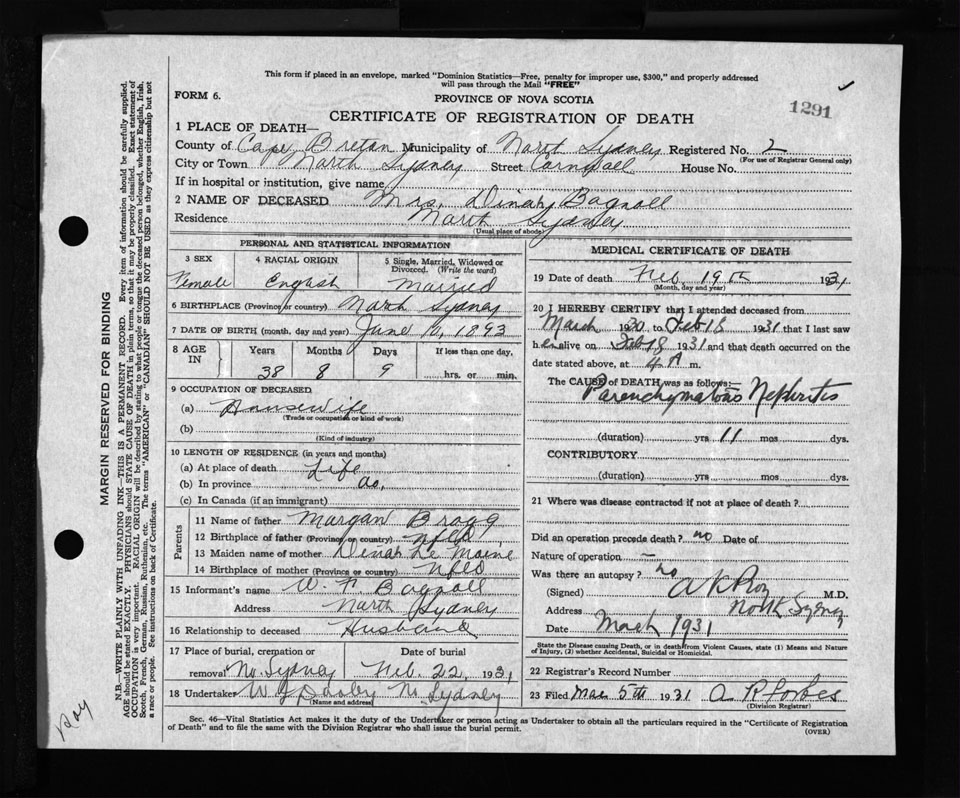 This form if placed in an envelope, marked "Dominion Statistics—Free, penalty for improper use, $300," and properly addressed
will pass through the Mail "FREE"
FORM 6.
PROVINCE OF NOVA SCOTIA
1291
CERTIFICATE OF REGISTRATION OF DEATH
1 PLACE OF DEATH—
County of Cape Breton Municipality of North Sydney Registered No. 2
(For use of Registrar General only)
City or Town North Sydney Street Cornwall House No.
If in hospital or institution, give name
2 NAME OF DECEASED Mrs. Dinah Bagnall
Residence North Sydney
(Usual place of abode)
PERSONAL AND STATISTICAL INFORMATION
3 SEX
Female
4 RACIAL ORIGIN
English
5 Single, Married, Widowed or Divorced. (Write the word)
Married
6 BIRTHPLACE (Province or country) North Sydney
7 DATE OF BIRTH (month, day and year) June 10, 1893
8 AGE IN Years Months Days If less than one day,
38 8 9 hrs. or min.
9 OCCUPATION OF DECEASED
(a) Housewife
(Trade or occupation or kind of work)
(b)
(Kind of industry)
10 LENGTH OF RESIDENCE (in years and months)
(a) At place of death Life
(b) In province do.
(c) In Canada (if an immigrant)
Parents
11 Name of father Morgan Bragg
12 Birthplace of father (Province or country) Nfld
13 Maiden name of mother Dinah Le Maine
14 Birthplace of mother (Province or country) Nfld
15 Informant's name W. F. Bagnall
Address North Sydney
16 Relationship to deceased Husband
17 Place of burial, cremation or removal No. Sydney
Date of burial
Feb. 22, 1931
18 Undertaker No Sydney
(Name and address)
MEDICAL CERTIFICATE OF DEATH
19 Date of death Feb 19th 1931
(Month, day and year)
20 I HEREBY CERTIFY that I attended deceased from
March 1930 to Feb 18 1931 that I last saw
her alive on Feb 18 1931 and that death occurred on the
date stated above, at 4 A m.
The CAUSE of DEATH was as follows:—
Parenchymatous Nephritis
(duration) yrs 11 mos dys.
CONTRIBUTORY
(duration) yrs mos dys.
21 Where was disease contracted if not at place of death?
Did an operation precede death? no Date of
Nature of operation —
Was there an autopsy? no
(Signed) A K Roy M.D.
Address North Sydney
Date March 1931
State the Disease causing Death, or in death from Violent Causes, state (1) Means and Nature
of Injury, (2) whether Accidental, Suicidal or Homicidal.
22 Registrar's Record Number
23 Filed Mar 5th 1931 A R Forbes
(Division Registrar)
Sec. 46—Vital Statistics Act makes it the duty of the Undertaker or person acting as Undertaker to obtain all the particulars required in the "Certificate of Registration
of Death" and to file the same with the Division Registrar who shall issue the burial permit.
(OVER)
MARGIN RESERVED FOR BINDING
N.B.—WRITE PLAINLY WITH UNFADING INK—THIS IS A PERMANENT RECORD. Every item of information should be carefully supplied.
AGE should be stated EXACTLY. PHYSICIANS should STATE CAUSE OF DEATH in plain terms, so that it may be properly classified. Exact statement of
OCCUPATION is very important. RACIAL ORIGIN will be described by stating to what people or tongue the deceased person belonged, whether English, Irish,
Scotch, French, German, Russian, Ruthenian, etc. The terms "AMERICAN" or "CANADIAN" SHOULD NOT BE USED as they express citizenship but not
a race or people. See instructions on back of Certificate.
Roy